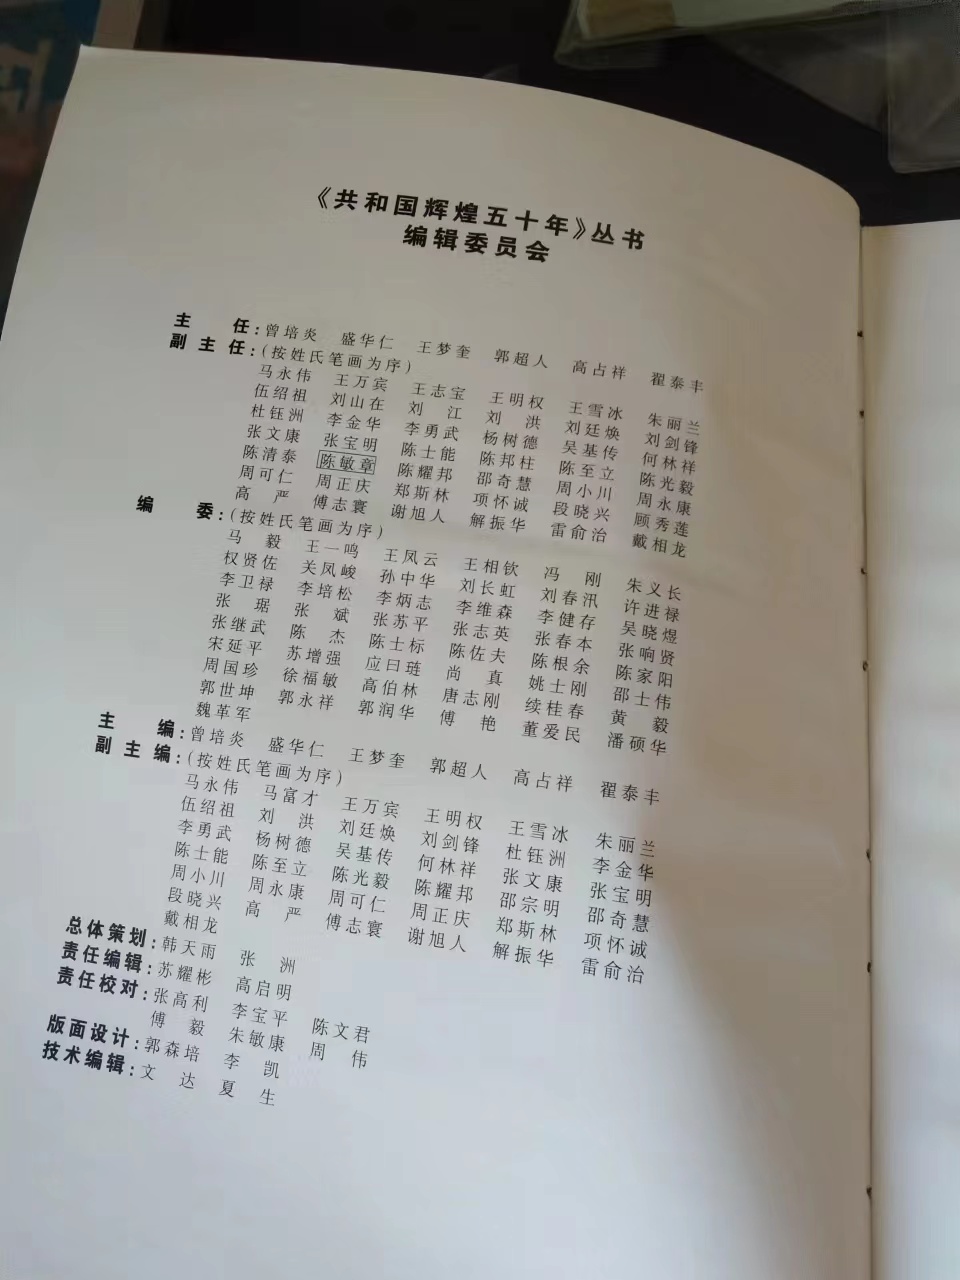 《共和国辉煌五十年》丛书
编辑委员会
主 任：曾培炎 盛华仁 王梦奎 郭超人 高占祥 翟泰丰
副主任：(按姓氏笔画为序)
马永伟 王万宾 王志宝 王明权 王雪冰 朱丽兰
伍绍祖 刘山在 刘 江 刘 洪 刘廷焕 刘剑锋
杜钰洲 李金华 李勇武 杨树德 吴基传 何林祥
张文康 张宝明 陈士能 陈邦柱 陈至立 陈光毅
陈清泰 陈敏章 陈耀邦 邵奇慧 周小川 周永康
周可仁 周正庆 郑斯林 项怀诚 段晓兴 顾秀莲
高 严 傅志寰 谢旭人 解振华 雷俞治 戴相龙
编 委：(按姓氏笔画为序)
马 毅 王一鸣 王凤云 王相钦 冯 刚 朱义长
权贤佐 关凤峻 孙中华 刘长虹 刘春汛 许进禄
李卫禄 李培松 李炳志 李维森 李健存 吴晓煜
张 琚 张 斌 张苏平 张志英 张春本 张响贤
张继武 陈 杰 陈士标 陈佐夫 陈根余 陈家阳
宋延平 苏增强 应曰琏 尚 真 姚士刚 邵士伟
周国珍 徐福敏 高伯林 唐志刚 续桂春 黄 毅
郭世坤 郭永祥 郭润华 傅 艳 董爱民 潘硕华
魏革军
主 编：曾培炎 盛华仁 王梦奎 郭超人 高占祥 翟泰丰
副主编：(按姓氏笔画为序)
马永伟 马富才 王万宾 王明权 王雪冰 朱丽兰
伍绍祖 刘 洪 刘廷焕 刘剑锋 杜钰洲 李金华
李勇武 杨树德 吴基传 何林祥 张文康 张宝明
陈士能 陈至立 陈光毅 陈耀邦 邵宗明 邵奇慧
周小川 周永康 周可仁 周正庆 郑斯林 项怀诚
段晓兴 高 严 傅志寰 谢旭人 解振华 雷俞治
戴相龙
总体策划：韩天雨 张 洲
责任编辑：苏耀彬 高启明
责任校对：张高利 李宝平 陈文君
傅 毅 朱敏康 周 伟
版面设计：郭森培 李 凯
技术编辑：文 达 夏 生